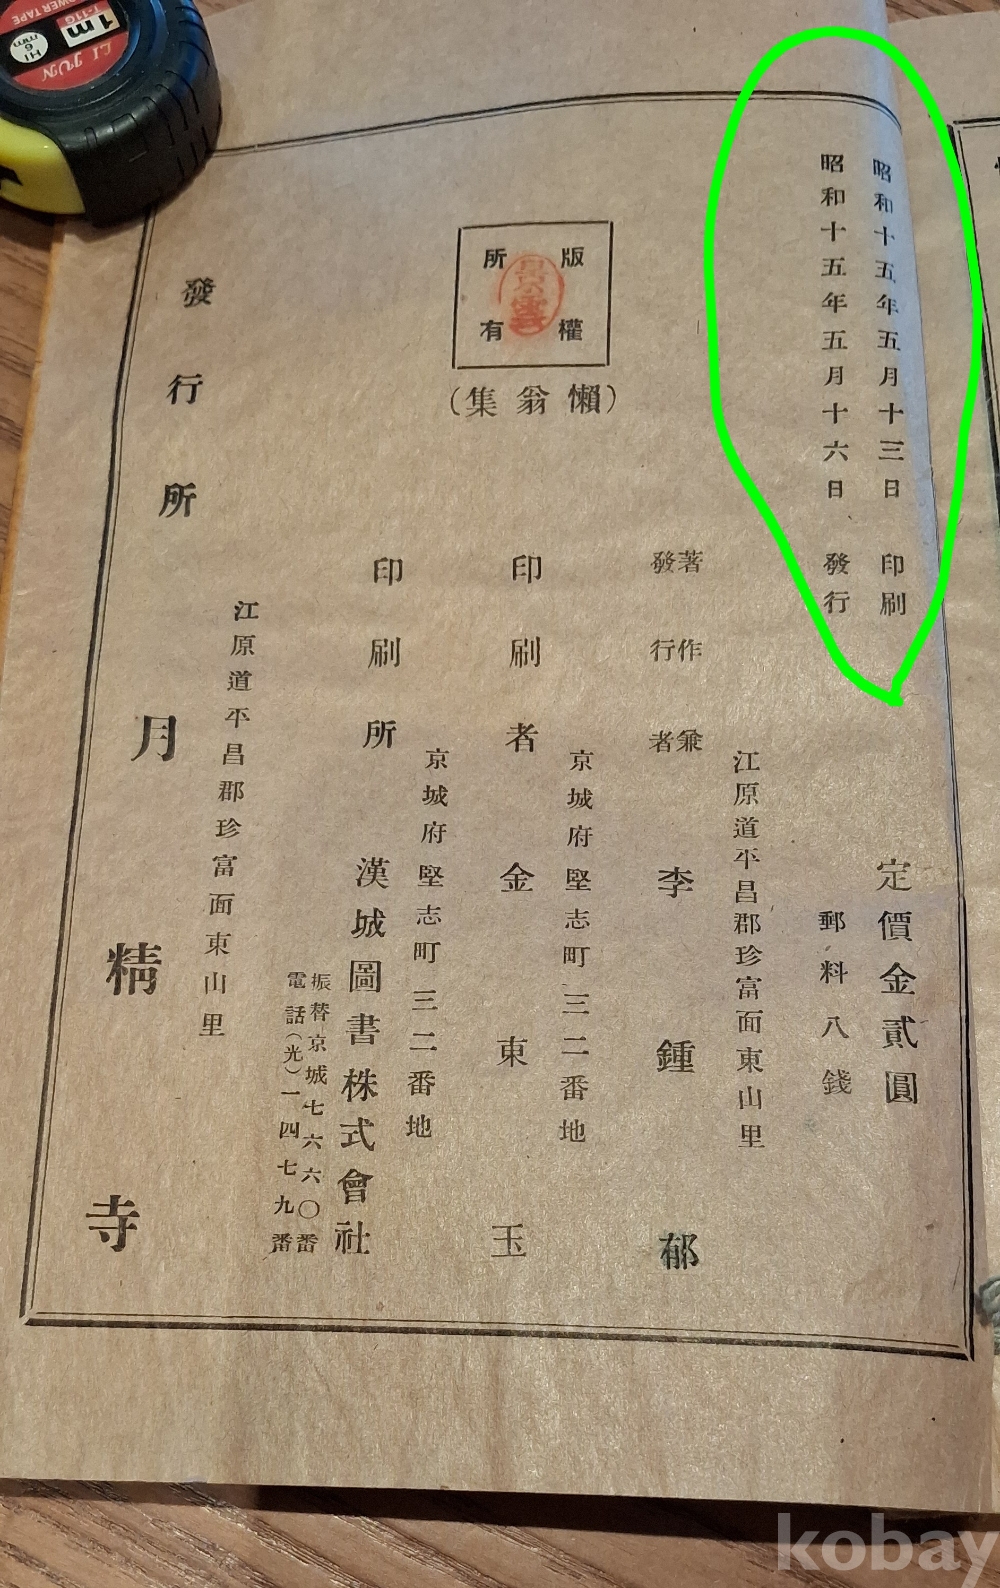 昭和十五年五月十三日 印刷
昭和十五年五月十六日 發行
定價金貳圓
郵料八錢
版權
所有
(懶翁集)
江原道平昌郡珍富面東山里
著作兼
發行者 李鍾郁
京城府堅志町三二番地
印刷者 金東玉
京城府堅志町三二番地
印刷所 漢城圖書株式會社
振替京城七六六〇番
電話(光)一四七九番
江原道平昌郡珍富面東山里
發行所 月精寺
LI JUN
1m
T-11G
POWER TAPE
HI
6
mm
kobay